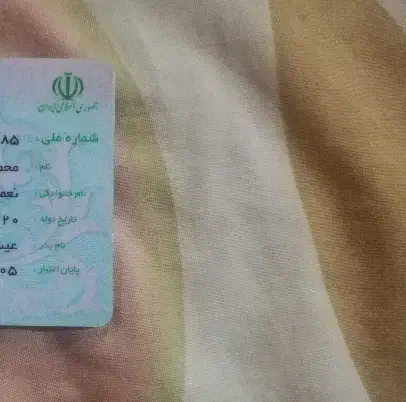 جمهوری اسلامی ایران
شماره ملی: ۸۵
نام: محم
نام خانوادگی: نعم
تاریخ تولد: ۲۰
نام پدر: عیس
پایان اعتبار: ۰۵